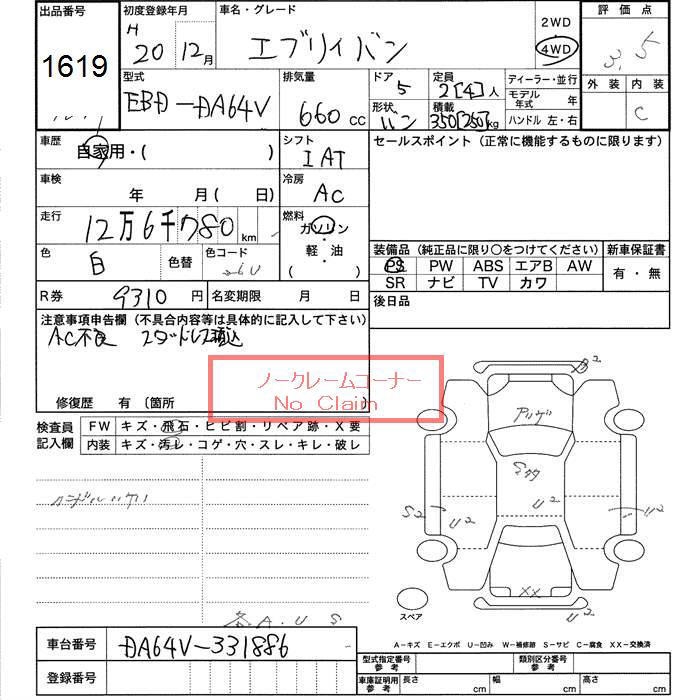 出品番号 初度登録年月 車名・グレード 2WD 評価点
1619 H 20年 12月 エブリイバン 4WD 3.5
型式 排気量 ドア 定員 ディーラー・並行 外装 内装
EBD-DA64V 660cc 5 2[4]人 モデル年式 年 C
形状 バン 積載 350[250]kg ハンドル 左・右
車歴 自家用・( ) シフト IAT セールスポイント (正常に機能するものに限ります)
車検 年 月(日) 冷房 AC
走行 12万6千780km 燃料 ガソリン・軽・油( )
色 白 色替 色コード 装備品(純正品に限り○をつけてください) 新車保証書
PS PW ABS エアB AW 有・無
SR ナビ TV カワ
R券 9310円 名変期限 月 日 後日品
注意事項申告欄(不具合内容等は具体的に記入して下さい)
AC不良
ノークレームコーナー
No Claim
修復歴 有〔箇所
検査員記入欄 FW キズ・飛石・ヒビ割・リペア跡・X要
内装 キズ・汚レ・コゲ・穴・スレ・キレ・破レ
B²
S² U² U² U²
XX
各A.U.S
スペア
A-キズ E-エクボ U-凹み W-補修跡 S-サビ C-腐食 XX-交換済
車台番号 DA64V-331886
登録番号
型式指定番号参考 類別区分番号参考
車庫証明用参考 長さ cm 幅 cm 高さ cm